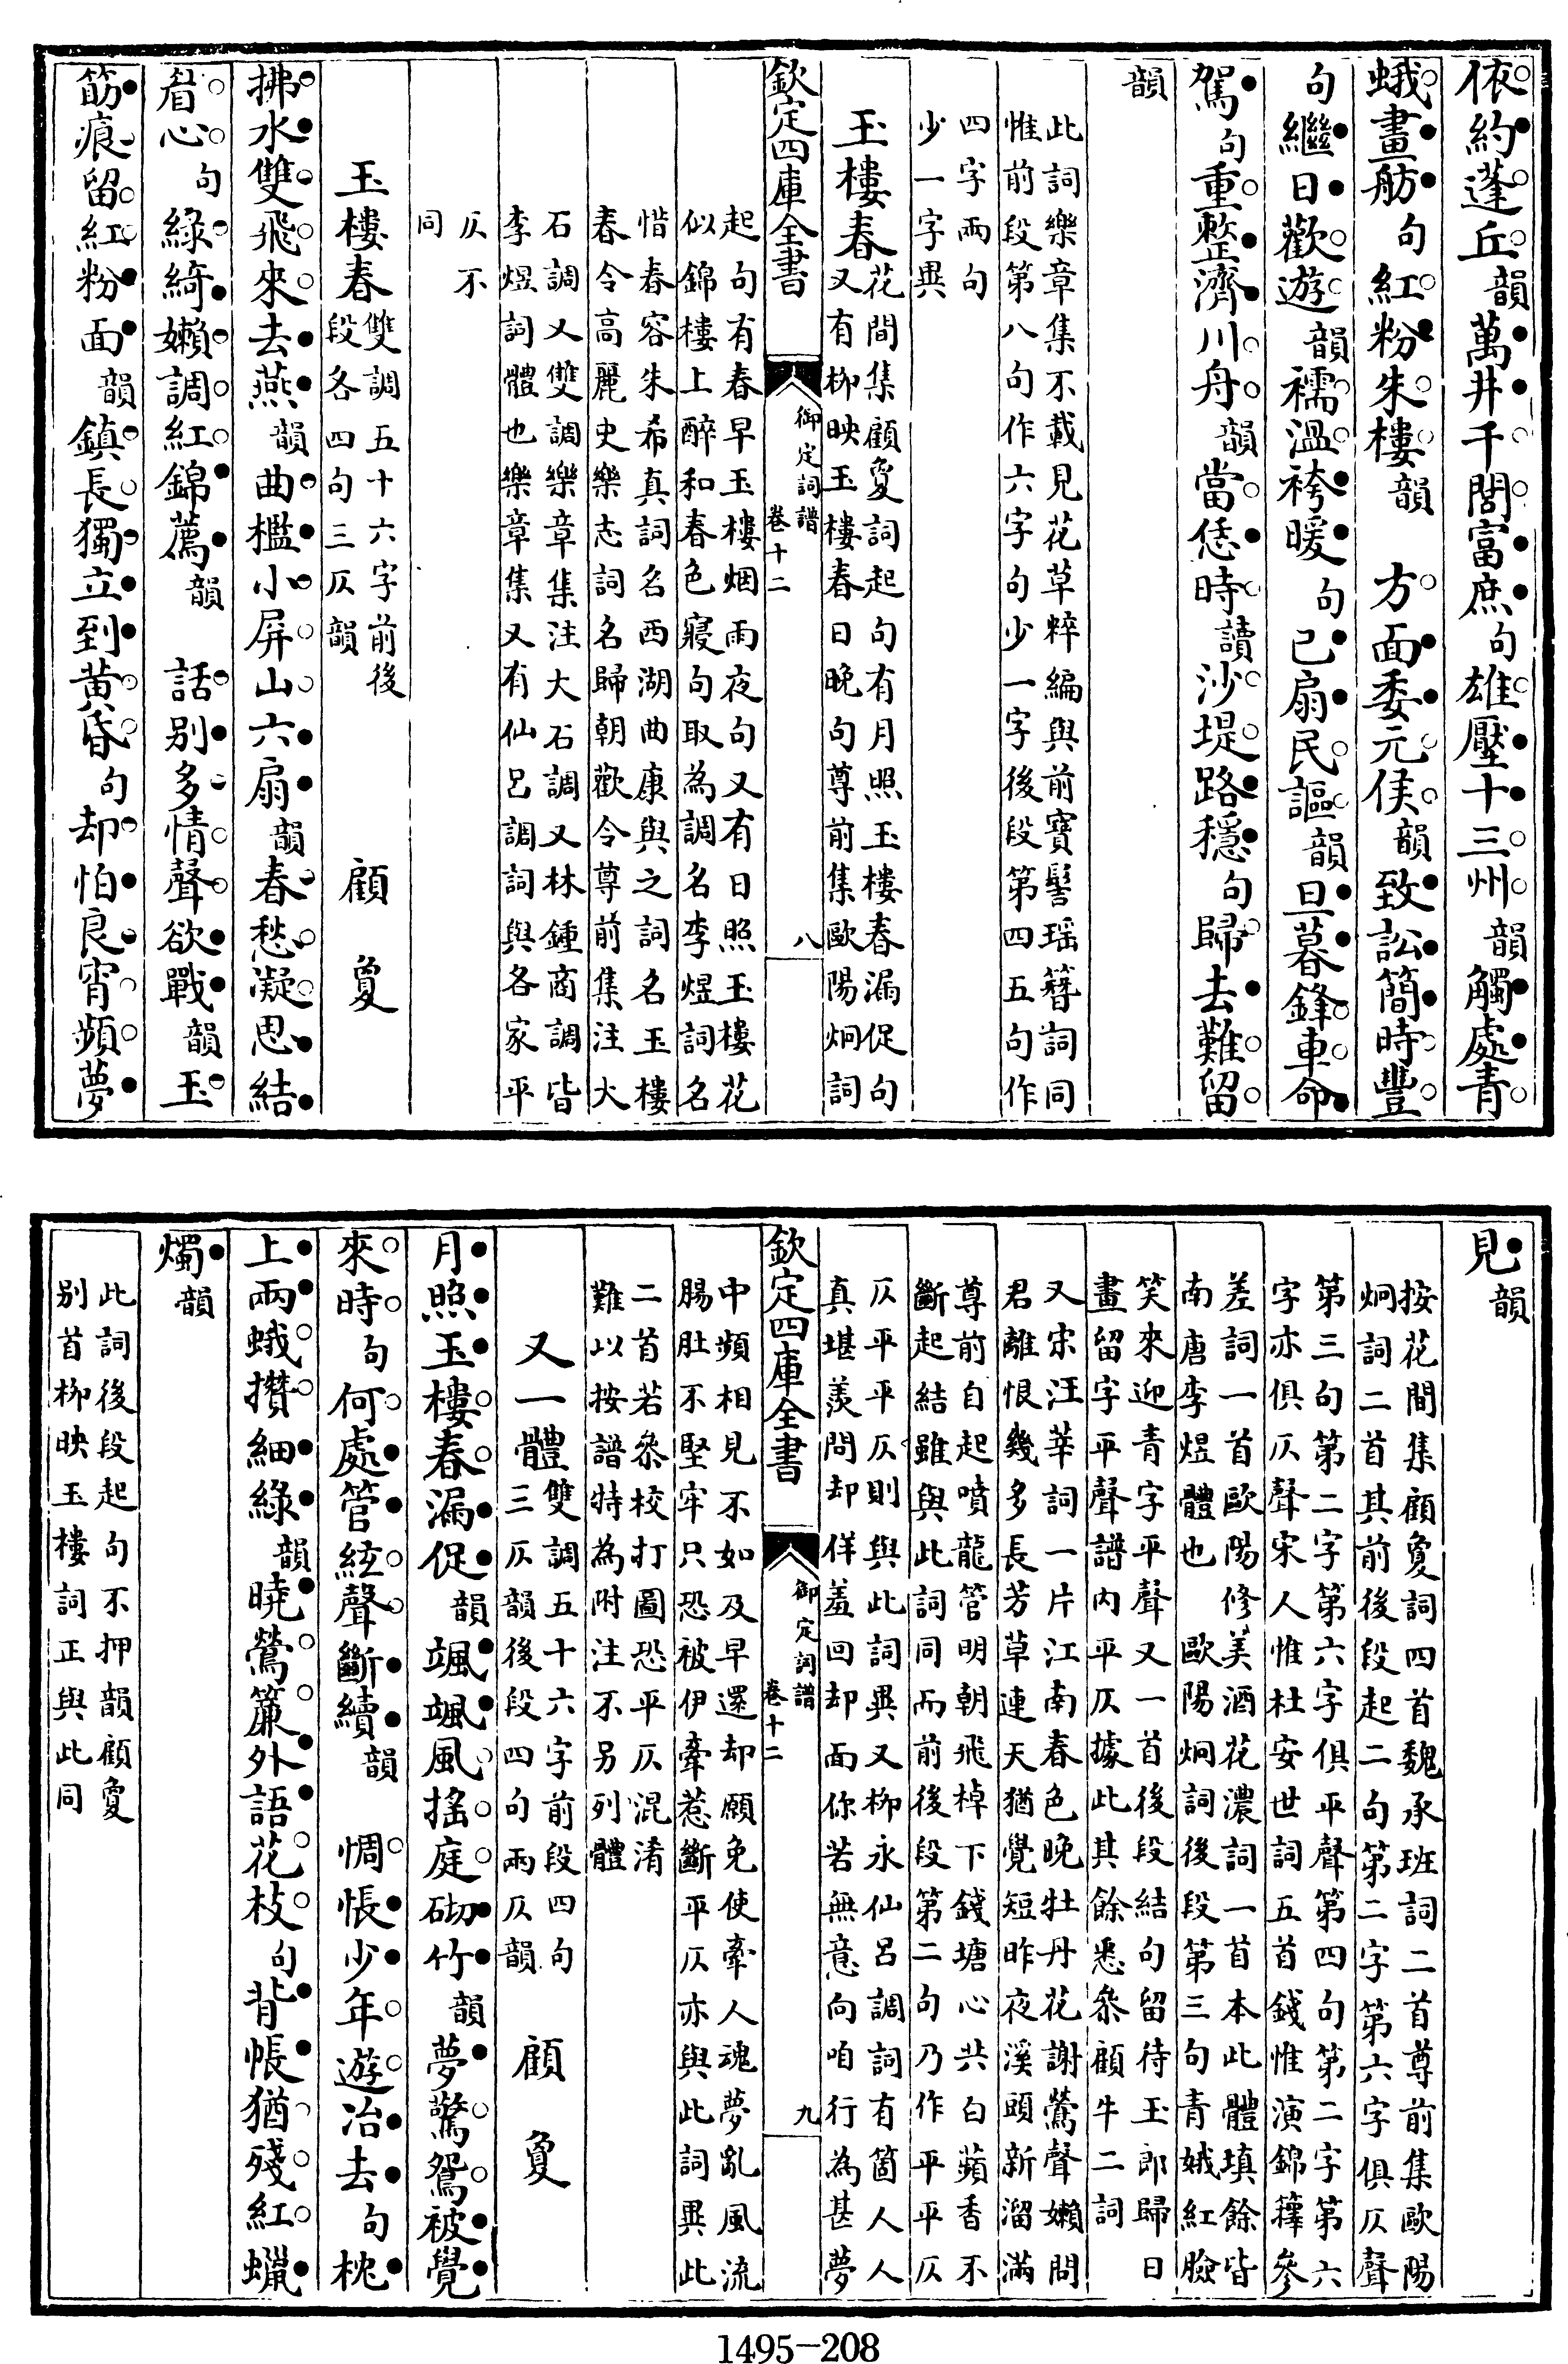 依約蓬丘韻萬井千閭富庶句雄壓十三州韻觸處青
蛾畫舫句紅粉朱樓韻　方面委元侯韻致訟簡時豐
句繼日歡遊韻襦溫袴暖句已扇民謳韻旦暮鋒車命
駕句重整濟川舟韻當恁時讀沙堤路穩句歸去難留
韻
此詞樂章集不載見花草粹編與前寶髻瑶簪詞同
惟前段第八句作六字句少一字後段第四五句作
四字兩句
少一字異
玉樓春
花間集顧敻詞起句有月照玉樓春漏促句
又有栁映玉樓春日晚句尊前集歐陽炯詞
欽定四庫全書
御定詞譜
卷十二
八
起句有春早玉樓烟雨夜句又有日照玉樓花
似錦樓上醉和春色寢句取為調名李煜詞名
惜春容朱希真詞名西湖曲康與之詞名玉樓
春令高麗史樂志詞名歸朝歡令尊前集注大
石調又雙調樂章集注大石調又林鍾商調皆
李煜詞體也樂章集又有仙吕調詞與各家平
仄不
同
玉樓春
雙調五十六字前後
段各四句三仄韻
顧敻
拂水雙飛來去燕韻曲檻小屏山六扇韻春愁凝思結
眉心句綠綺嬾調紅錦薦韻　話别多情聲欲戰韻玉
筯痕留紅粉面韻鎮長獨立到黄昏句却怕良宵頻夢
見韻
按花間集顧敻詞四首魏承班詞二首尊前集歐陽
炯詞二首其前後段起二句第二字第六字俱仄聲
第三句第二字第六字俱平聲第四句第二字第六
字亦俱仄聲宋人惟杜安世詞五首錢惟演錦籜參
差詞一首歐陽修美酒花濃詞一首本此體填餘皆
南唐李煜體也　歐陽炯詞後段第三句青娥紅臉
笑來迎青字平聲又一首後段結句留待玉郎歸日
畫留字平聲譜内平仄據此其餘悉叅顧牛二詞
又宋汪莘詞一片江南春色晚牡丹花謝鶯聲嬾問
君離恨幾多長芳草連天猶覺短昨夜溪頭新溜滿
尊前自起噴龍管明朝飛棹下錢塘心共白蘋香不
斷起結雖與此詞同而前後段第二句乃作平平仄
仄平平仄則與此詞異又栁永仙吕調詞有箇人人
真堪羨問却佯羞回却面你若無意向咱行為甚夢
欽定四庫全書
御定詞譜
卷十二
九
中頻相見不如及早還却願免使牽人魂夢亂風流
腸肚不堅牢只恐被伊牽惹斷平仄亦與此詞異此
二首若叅校打圖恐平仄混淆
難以按譜特為附注不另列體
又一體
雙調五十六字前段四句
三仄韻後段四句兩仄韻
顧敻
月照玉樓春漏促韻颯颯風搖庭砌竹韻夢驚鴛被覺
來時句何處管絃聲斷續韻　惆悵少年遊冶去句枕
上兩蛾攢細綠韻曉鶯簾外語花枝句背帳猶殘紅蠟
燭韻
此詞後段起句不押韻顧敻
别首栁映玉樓詞正與此同
1495-208